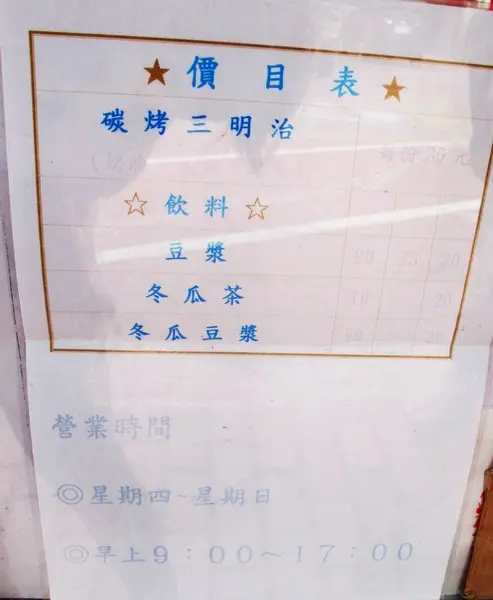 ★ 價目表 ★
碳烤三明治
每份30元
☆ 飲料 ☆
豆漿 20 25 30
冬瓜茶 10 20
冬瓜豆漿 20 30
營業時間
◎星期四~星期日
◎早上9:00~17:00